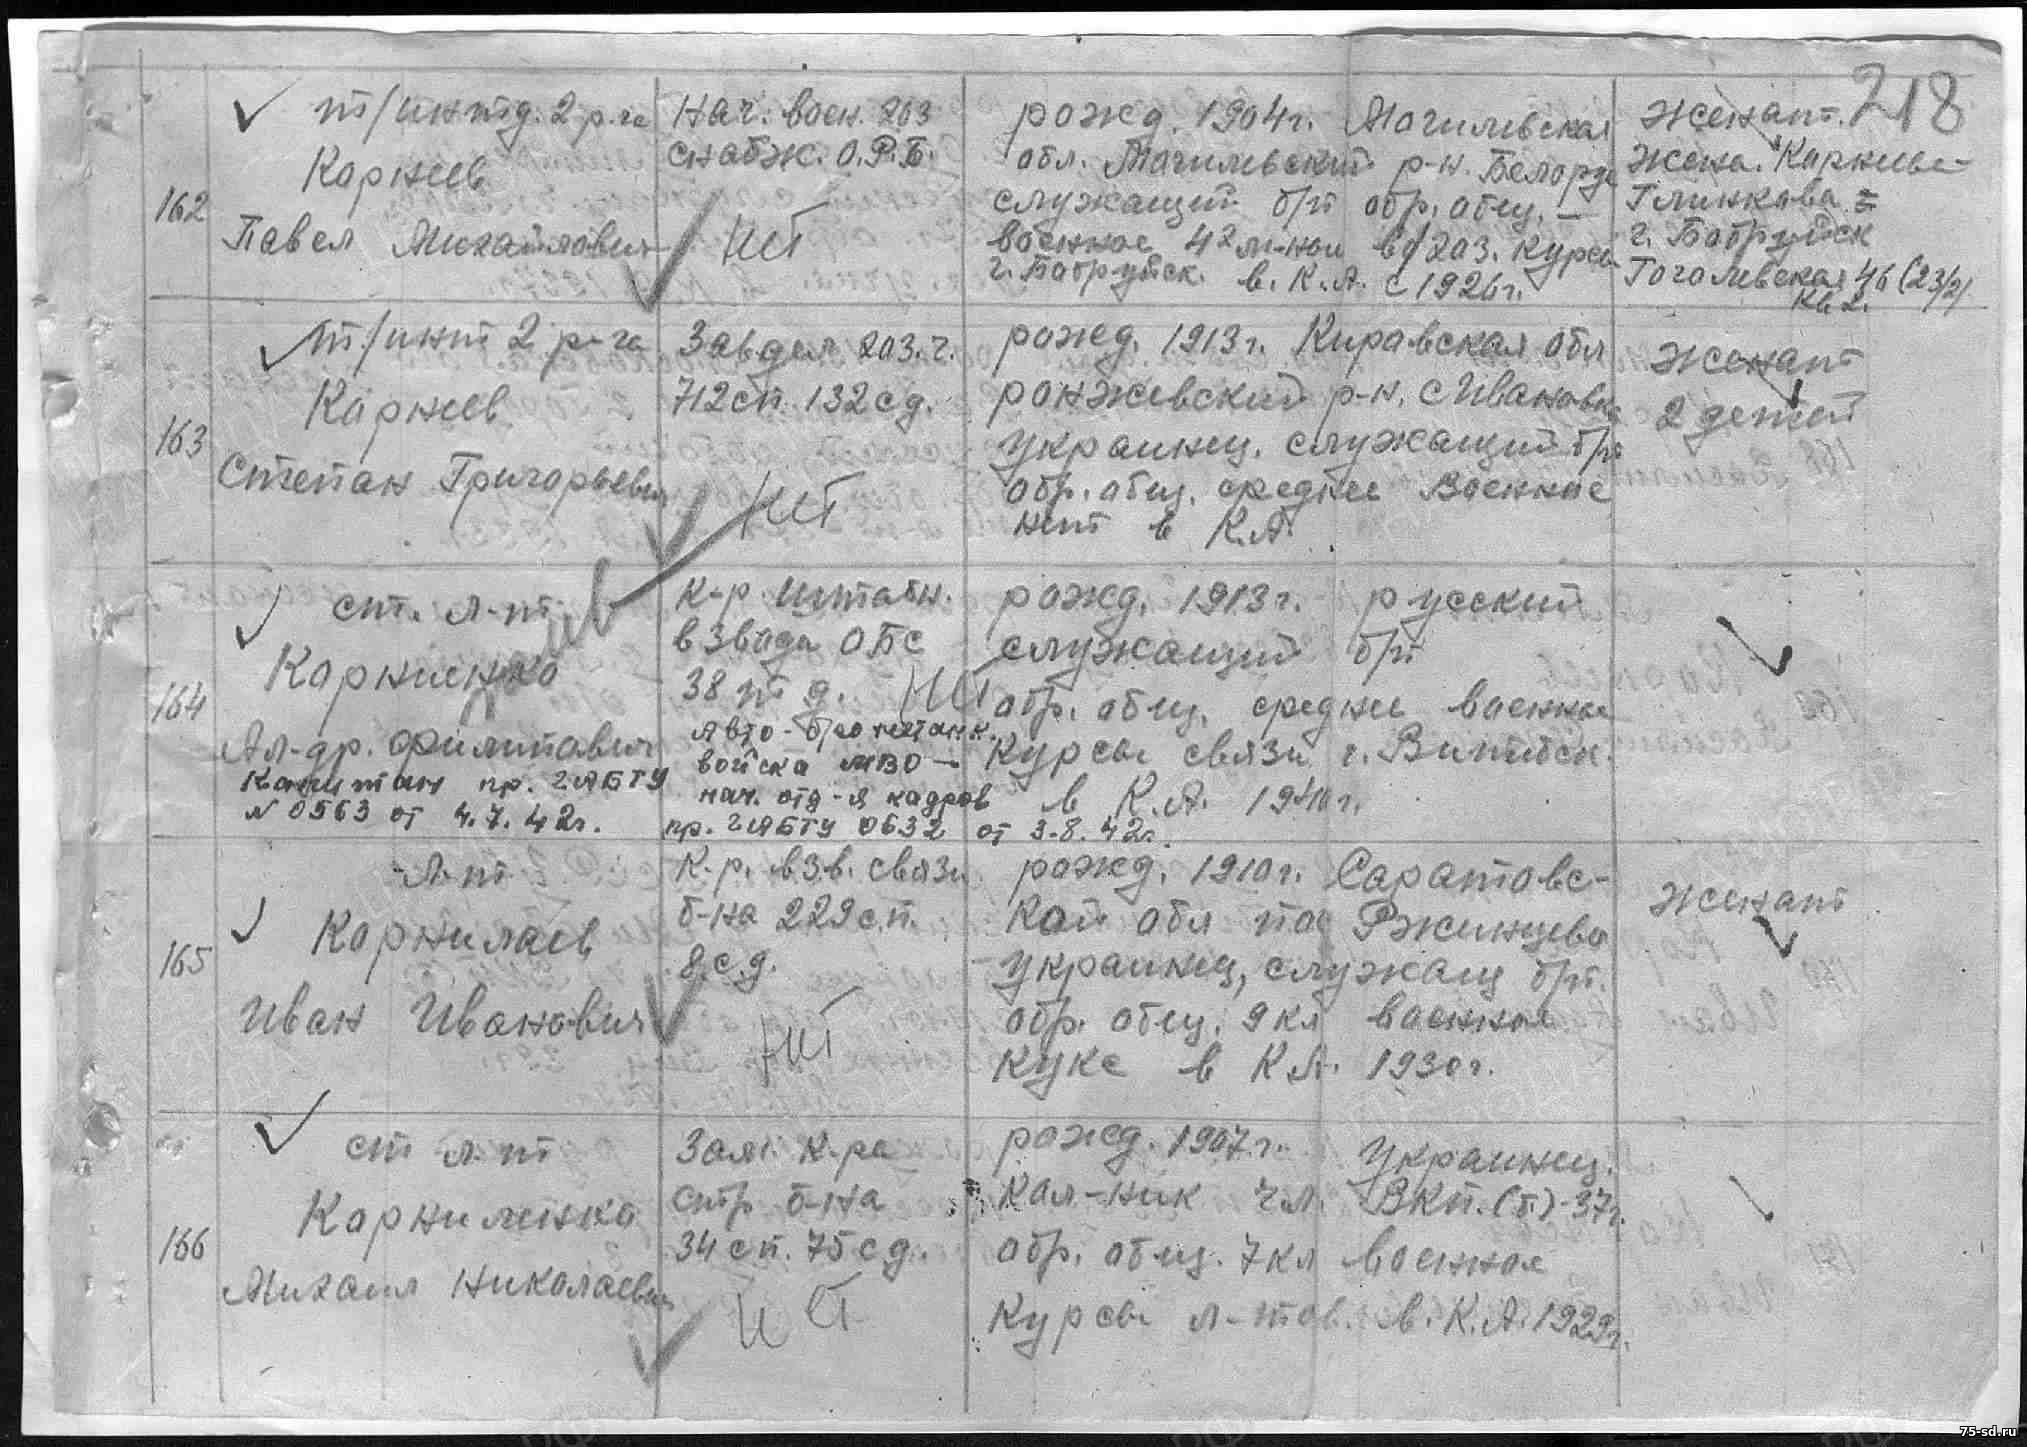 218
162
т/интд. 2 р-га
Карнеев
Павел Михайлович
Нач. воен. хоз
снабж. О.Р.Б.
НЕТ
рожд. 1904г. Могилевская
обл. Могилевский р-н. Белорус
служащий б/п обр. общ. —
военное 4х м-ной в/хоз. курсы
г. Бобруйск. в. К.А. с 1926г.
женат.
жена. Карнеева
Глинкова
г. Бобруйск
Гоголевская 46 (23/2)
кв 2.
163
т/инт 2 р-га
Карнеев
Степан Григорьевич
Завдел. хоз. ч.
712сп. 132сд.
НЕТ
рожд. 1913г. Кировская обл
р-н. с Ивановка
украинец. служащий б/п
обр. общ. среднее Военное
нет в К.А.
женат
2 детей
164
ст. л-т
Карниенко
Ал-др. Филипович
Капитан пр. ГАБТУ
№ 0563 от 4.7.42г.
к-р. штабн.
взвода ОБС
38 т д. НЕТ
Авто-бронетанк.
войска МВО —
нач. отд-я кадров
пр. ГАБТУ 0632 от 3.8.42г.
рожд. 1913г. русский
служащий б/п
обр. общ. среднее военное
Курсы связи г. Витебск.
в К.А. 1940г.
165
Л-т
Карнилаев
Иван Иванович
К-р. взв. связи
б-на 229сп.
8 с.д.
НЕТ
рожд. 1910г. Саратовс-
кой обл пос Ржинцева
украинец, служащ б/п.
обр. общ. 9 кл военное
КУКС в КА. 1930г.
женат
166
ст л-т
Карниленко
Михаил Николаевич
Зам. к-ра
стр б-на
34 сп. 75 сд.
НЕТ
рожд. 1907г. Украинец.
кол-ник чл. ВКП.(б.)-37г.
обр. общ. 7 кл военное
Курсы л-тов. в. К.А. 1929г.
75-sd.ru